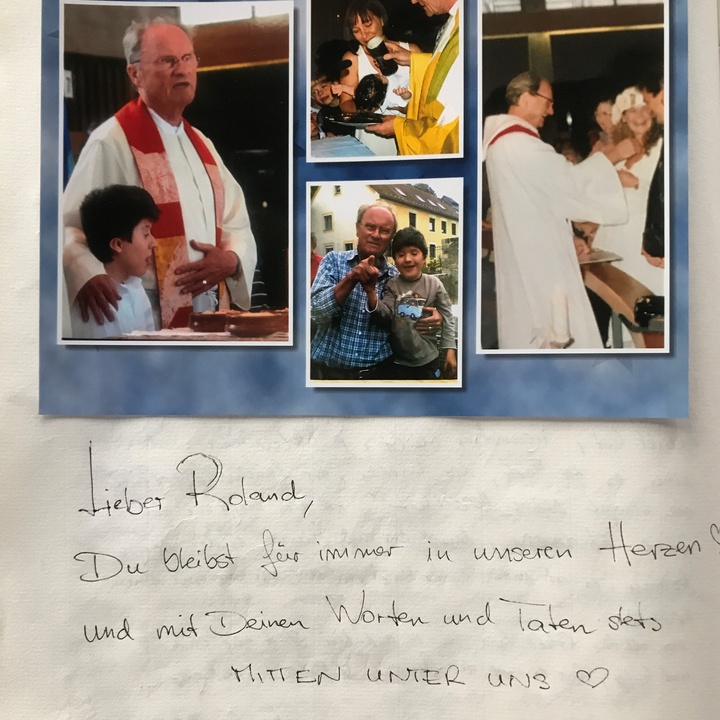 Lieber Roland,
Du bleibst für immer in unseren Herzen ♡
und mit Deinen Worten und Taten stets
MITTEN UNTER UNS ♡